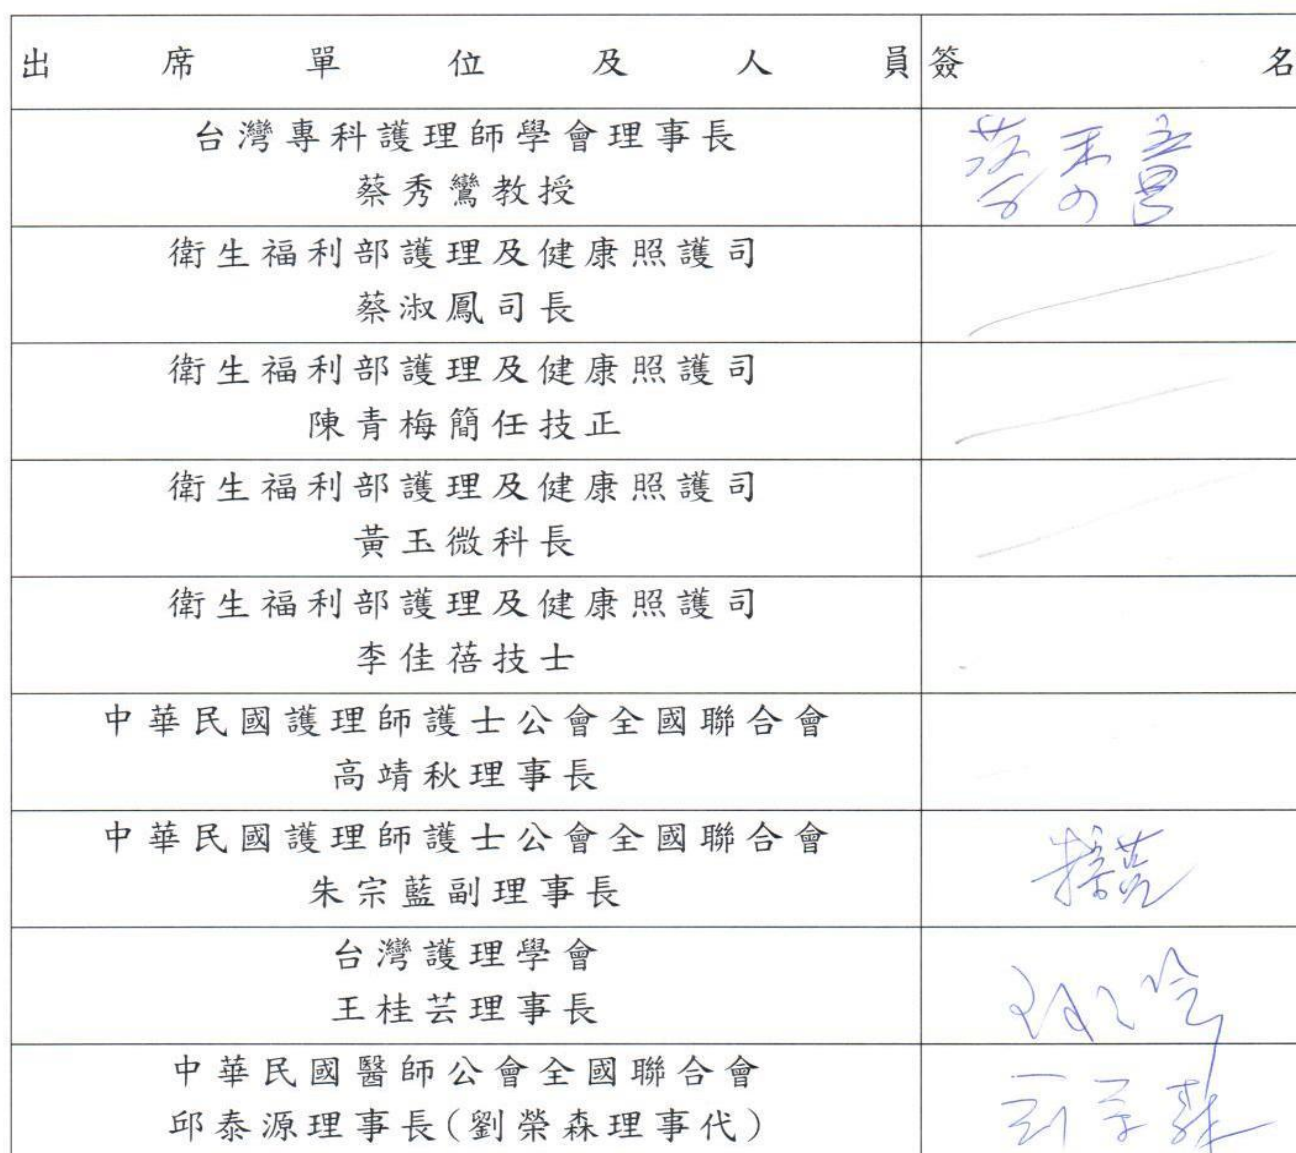 出席單位及人員 簽名
台灣專科護理師學會理事長
蔡秀鸞教授
衛生福利部護理及健康照護司
蔡淑鳳司長
衛生福利部護理及健康照護司
陳青梅簡任技正
衛生福利部護理及健康照護司
黃玉微科長
衛生福利部護理及健康照護司
李佳蓓技士
中華民國護理師護士公會全國聯合會
高靖秋理事長
中華民國護理師護士公會全國聯合會
朱宗藍副理事長
台灣護理學會
王桂芸理事長
中華民國醫師公會全國聯合會
邱泰源理事長(劉榮森理事代)